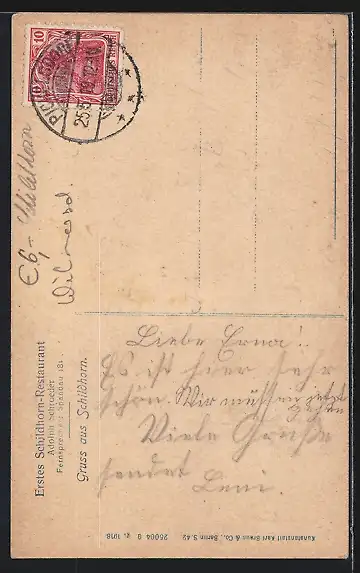 10
10
DEUTSCHES REICH
25.5
€6,- Schildhorn
Wilmersd.
Erstes Schildhorn-Restaurant
Adolph Schroeder
Fernsprecher: Spandau 181.
Gruss aus Schildhorn.
Liebe Erna!
Es ist hier sehr
schön. Wir müssen jetzt
gehen
Viele Grüße
sendet
Leni
Kunstanstalt Karl Braun & Co., Berlin S. 42
25004 g. 1918.